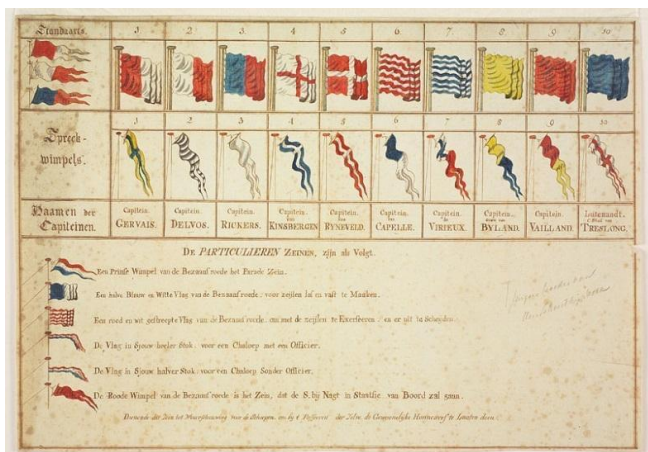 Standaarts.
1 2. 3. 4 5 6. 7 8 9. 10
Spreek-
wimpels.
1 2 3 4 5. 6 7 8 9 10
Naamen der
Capiteinen.
Capitein.
GERVAIS.
Capitein.
DELVOS.
Capitein.
RICKERS.
Capitein.
van
KINSBERGEN
Capitein.
van
RYNEVELD.
Capitein.
van
CAPELLE.
Capitein.
de
VIRIEUX.
Capitein.
BYLAND.
Capitein.
VAILLAND.
Luitenandt.
TRESLONG.
DE PARTICULIEREN ZEINEN, zijn als Volgt.
Een Prinse Wimpel van de Bezaansroede het Parade Zein.
Een halve Blauw en Witte Vlag van de Bezaansroede: voor zeijlen los en vast te Maaken.
Een rood en wit gestreepte Vlag van de Bezaansroede: om met de zeijlen te Exerseeren: en er uit te Scheyden.
De Vlag in Sjouw heeler Stok: voor een Chaloep met een Officier.
De Vlag in Sjouw halver Stok: voor een Chaloep Sonder Officier.
De Roode Wimpel van de Bezaansroede is het Zein, dat de S. bij Nagt in Staatsie van Boord zal gaan.